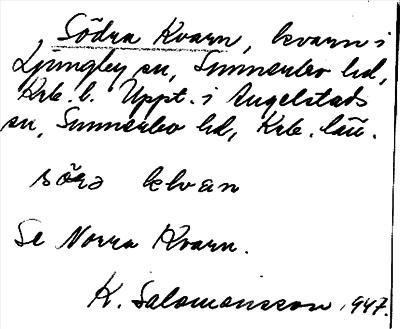 Södra Kvarn, kvarn i
Ljungby sn, Sunnerbo hd,
Krb. l. Uppt. i Angelstads
sn, Sunnerbo hd, Krb. län.
sörə kvan
Se Norra Kvarn.
K. Salomonsson 1947.